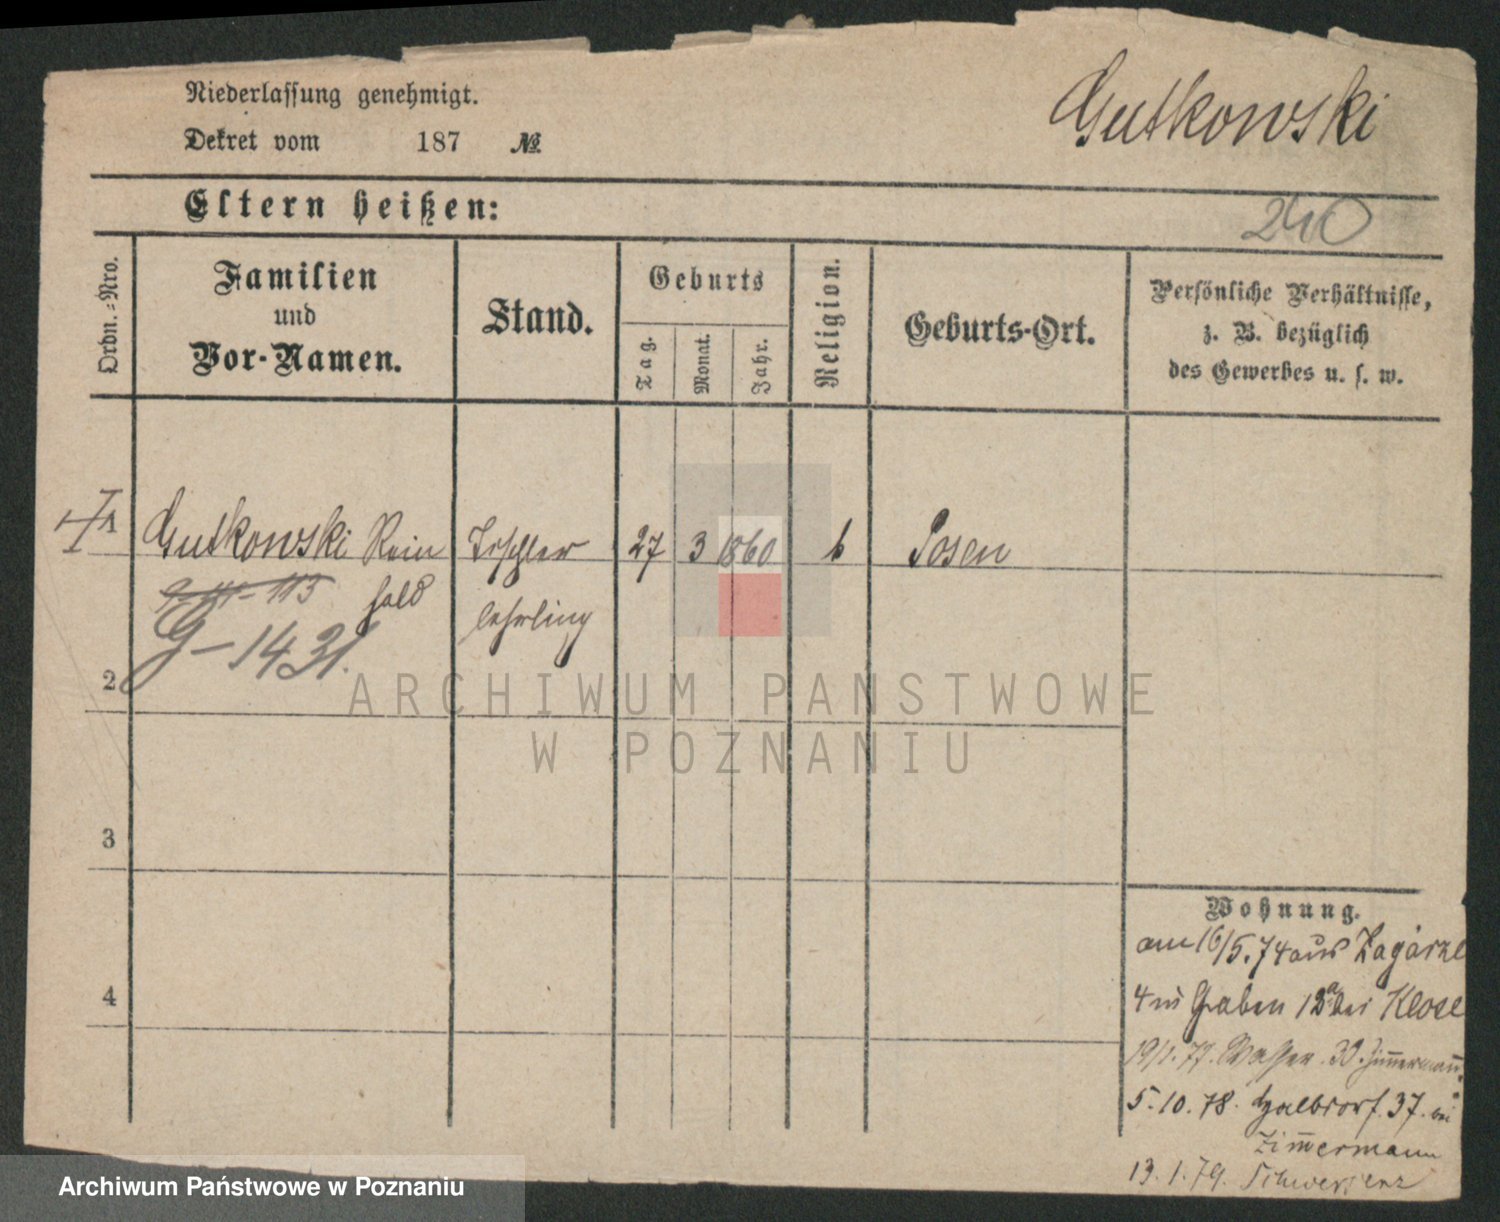 Niederlassung genehmigt.
Gutkowski
Dekret vom 187 №
Eltern heißen:
240
Ordn.=Nro.
Familien
und
Vor-Namen.
Stand.
Geburts
Tag.
Monat.
Jahr.
Religion.
Geburts-Ort.
Persönliche Verhältnisse,
z. B. bezüglich
des Gewerbes u. s. w.
1 Gutkowski Rein Tischler 27 3 1860 k Posen
hold lehrling
G-1431.
2
3
4
Wohnung.
am 16/5.74 aus Zagórze
4 in Graben 13 bei Klose
19/1.77. Wasser. 30. Zimmermann.
5.10.78. Halbdorf. 37. bei
Zimmermann
13.1.79. Schwersenz
ARCHIWUM PAŃSTWOWE
W POZNANIU
Archiwum Państwowe w Poznaniu